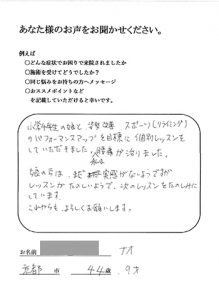 あなた様のお声をお聞かせください。
例えば
○どんな症状でお困りで来院されましたか
○施術を受けてどうでしたか?
○同じ悩みをお持ちの方へメッセージ
○おススメポイントなど
を記載していただけると幸いです。
小学生の娘と 姿勢改善 スポーツ(クライミング)
のパフォーマンスアップを目標に 個別レッスンを
していただきました。 私は 腰痛が治りました。
娘の方は、まだ 実感がないようですが
レッスンが たのしいようで、次のレッスンをたのしみに
しています。
これからも よろしくお願いします。
お名前
京都 市 44歳・9才